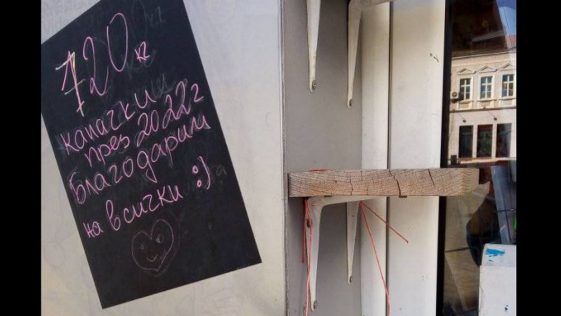 720 кг
капачки
през 2022 г
благодарим
на всички :)